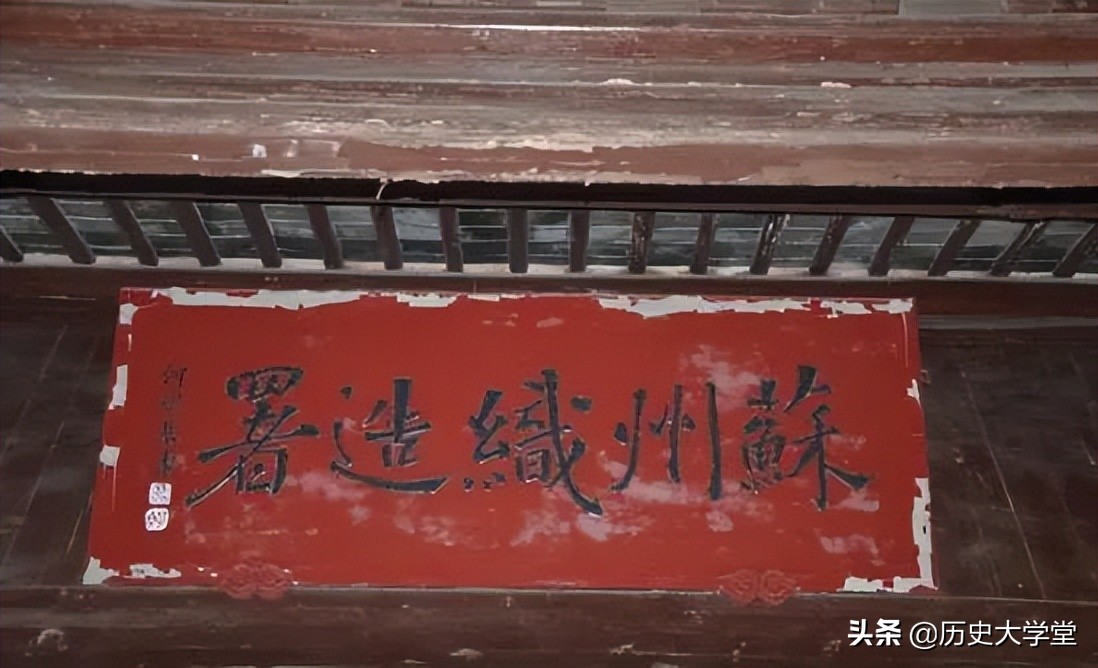 蘇州織造署
头条 @历史大学堂